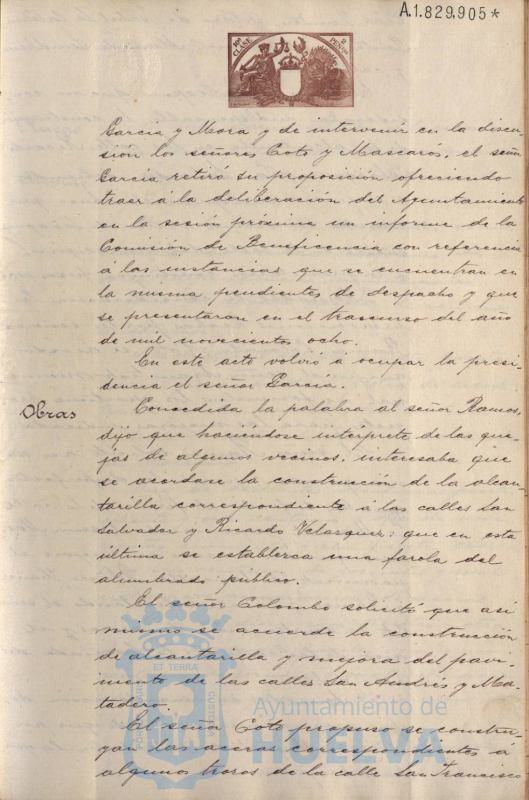 A.1.829.905*
10ª CLASE 2 PESETAS
García y Mora y de intervenir en la discu-
sión los señores Coto y Mascarós, el señor
García retiró su proposición ofreciendo
traer á la deliberación del Ayuntamiento
en la sesión próxima un informe de la
Comisión de Beneficencia con referencia
á las instancias que se encuentran en
la misma pendientes de despacho y que
se presentaron en el trascurso del año
de mil novecientos ocho.
En este acto volvió á ocupar la presi-
dencia el señor García.
Obras
Concedida la palabra al señor Ramos,
dijo que haciéndose intérprete de las que-
jas de algunos vecinos, interesaba que
se acordase la construcción de la alcan-
tarilla correspondiente á las calles San
Salvador y Ricardo Velazquez; que en esta
última se establezca una farola del
alumbrado público.
El señor Colombo solicitó que asi
mismo se acuerde la construcción
de alcantarilla y mejora del pavi-
mento de las calles San Andrés y Ma-
tadero.
El señor Coto propuso se constru-
yan las aceras correspondientes á
algunos trozos de la calle San Francisco
Ayuntamiento de
HUELVA